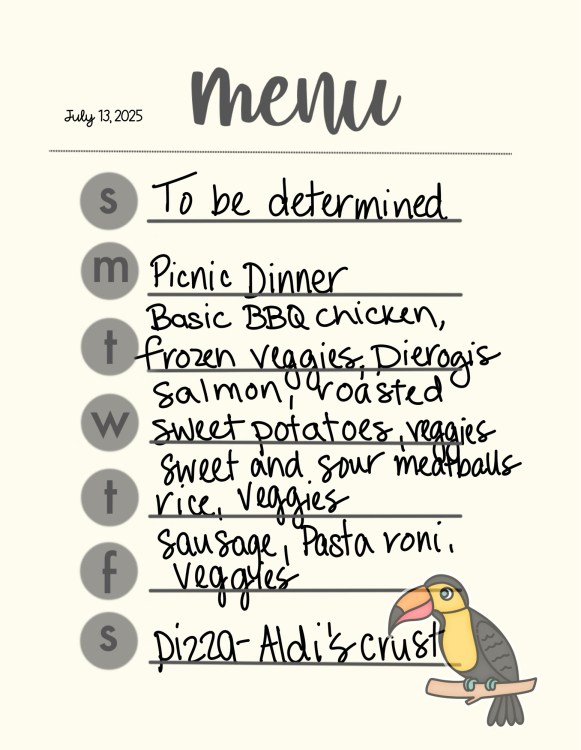 menu
July 13, 2025
s To be determined
m Picnic Dinner
Basic BBQ chicken,
t frozen veggies, Pierogis
salmon, roasted
w sweet potatoes, veggies
sweet and sour meatballs
t rice, veggies
sausage, Pasta roni,
f veggies
s pizza- Aldi's crust